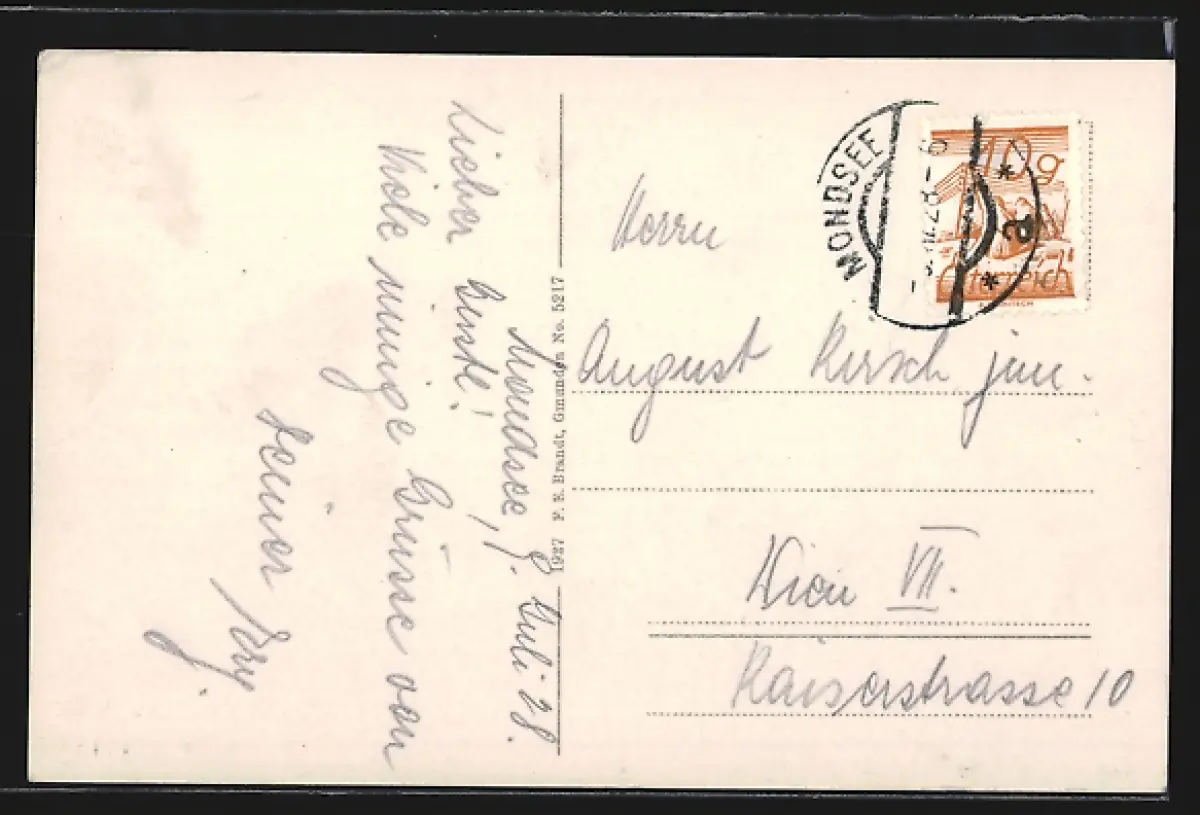 Mondsee, 8. Juli 28.
Lieber Gustl!
Viele innige Grüsse von
Deiner
1927 F. E. Brandt, Gmunden No. 5217
MONDSEE
28-6
* a *
10g
Österreich
Herrn
August Kirsch jun.
Wien VII.
Kaiserstrasse 10